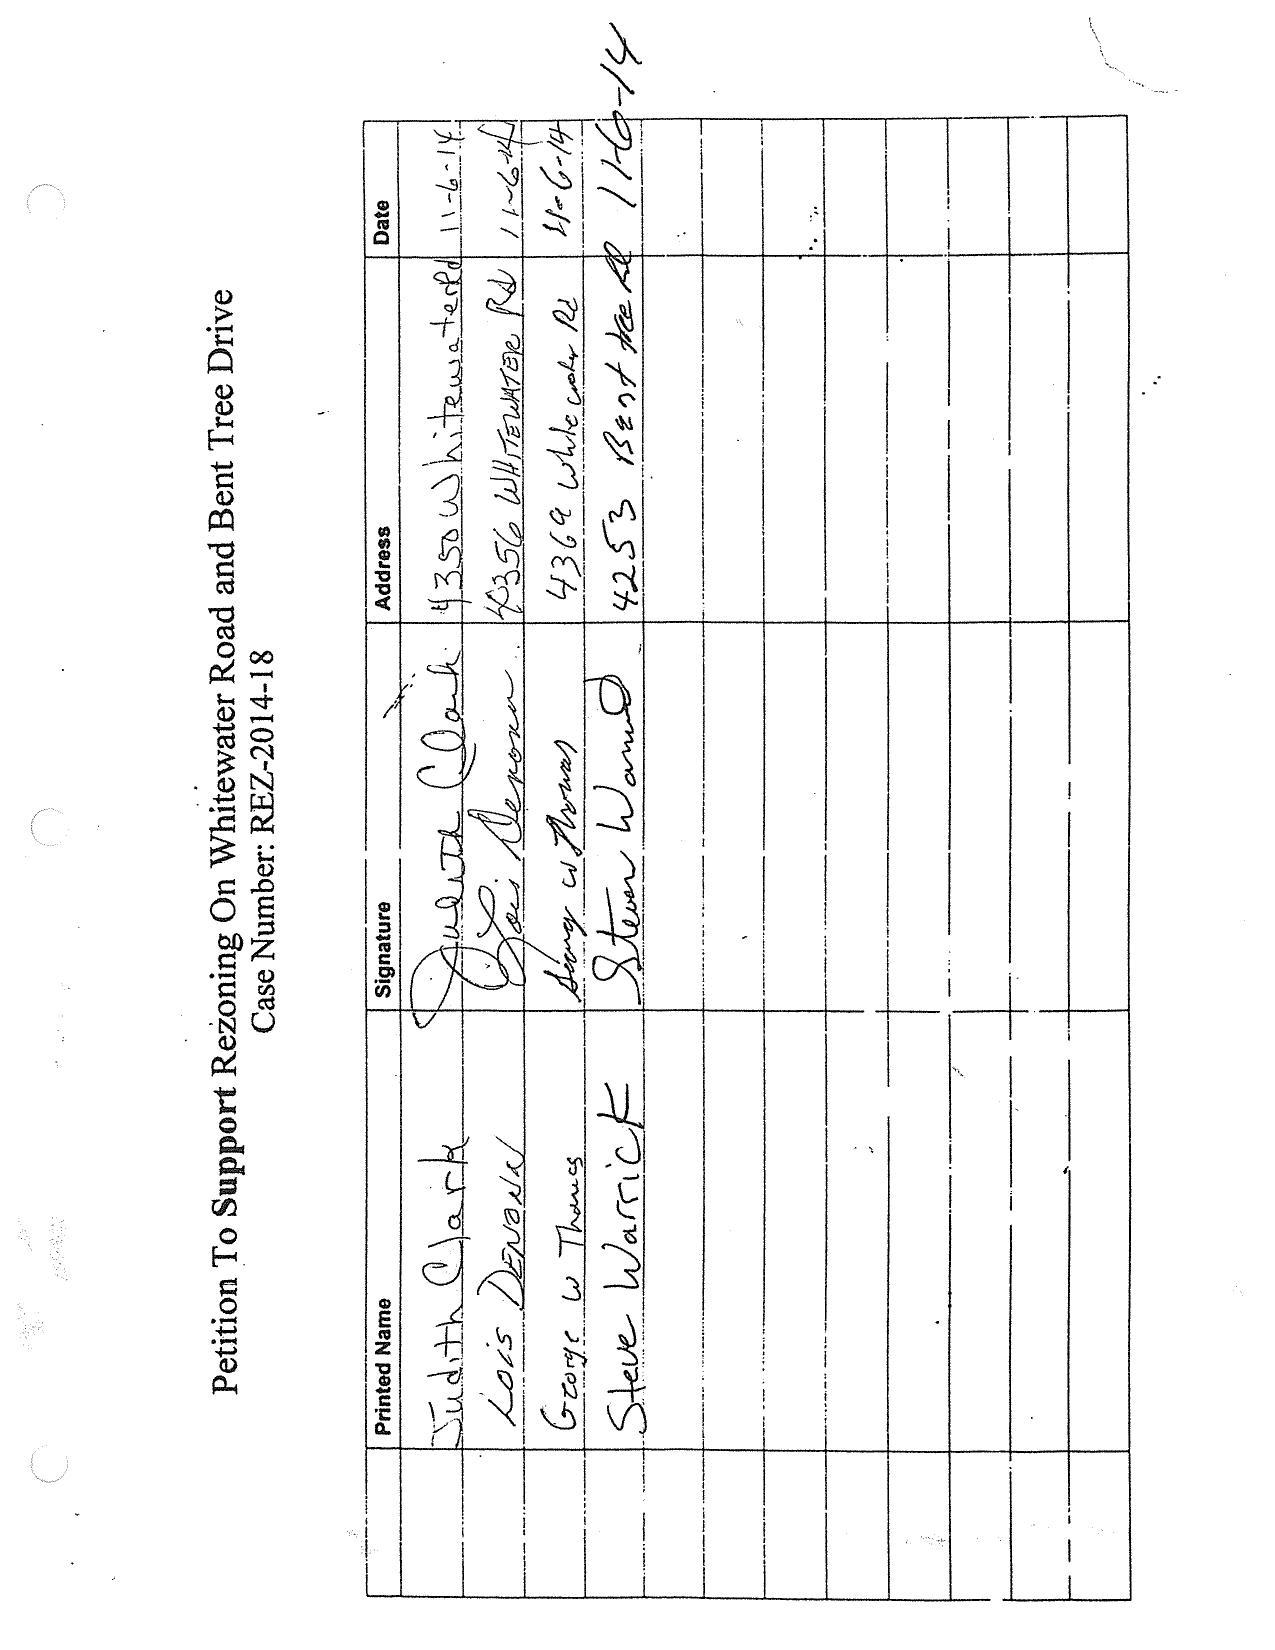 Petition To Support Rezoning On Whitewater Road and Bent Tree Drive
Case Number: REZ-2014-18
Printed Name Signature Address Date
Judith Clark Judith Clark 4350 Whitewater Rd 11-6-14
LOIS DENONN Lois Denonn 4356 WHITEWATER Rd 11-6-14
George W Thomas George W Thomas 4369 Whitewater Rd 11-6-14
Steve Warrick Steven Warrick 4253 Bent tree Rd 11-6-14